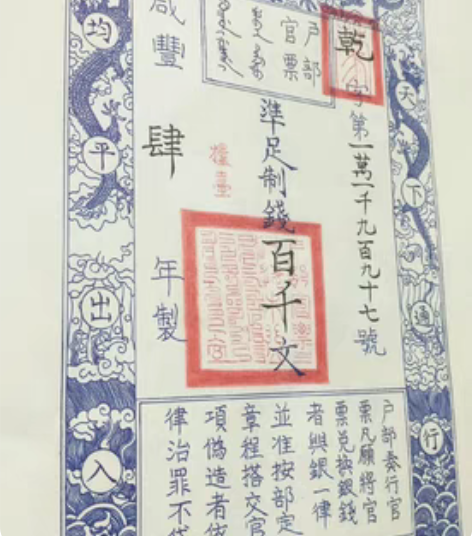 天下通行
乾字第一萬一千九百九十七號
户部
官票
準足制錢百千文
咸豐肆年製
均平出入
户部奏行官
票凡願將官
票兑換銀錢
者與銀一律
並准按部定
章程搭交官
項偽造者依
律治罪不貸